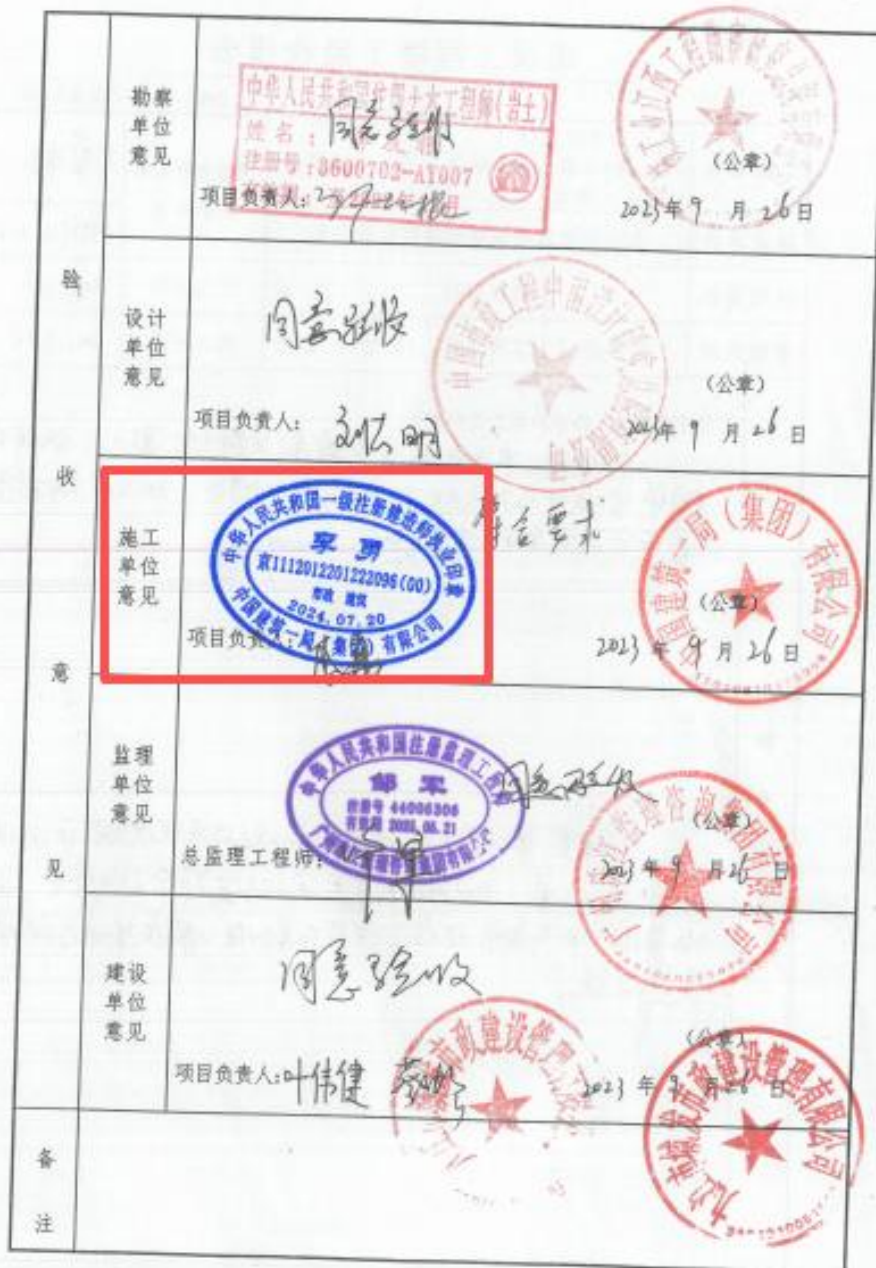 验
收
意
见
勘察
单位
意见
中华人民共和国注册土木工程师(岩土)
姓名:
同意验收
注册号:3600702-AY007
项目负责人:
(公章)
2023年9月26日
设计
单位
意见
同意验收
项目负责人:
(公章)
2023年9月26日
施工
单位
意见
中华人民共和国一级注册建造师执业印章
李勇
京1112012201222096(00)
市政 建筑
2024.07.20
中国建筑一局(集团)有限公司
符合要求
项目负责人:
中国建筑一局(集团)有限公司
(公章)
2023年9月26日
监理
单位
意见
中华人民共和国注册监理工程师
邹军
注册号 44006306
有效期 2025.05.21
同意验收
总监理工程师:
(公章)
2023年9月26日
建设
单位
意见
同意验收
项目负责人:叶伟健
(公章)
2023年9月26日
九江市城发市政建设管理有限公司
备
注